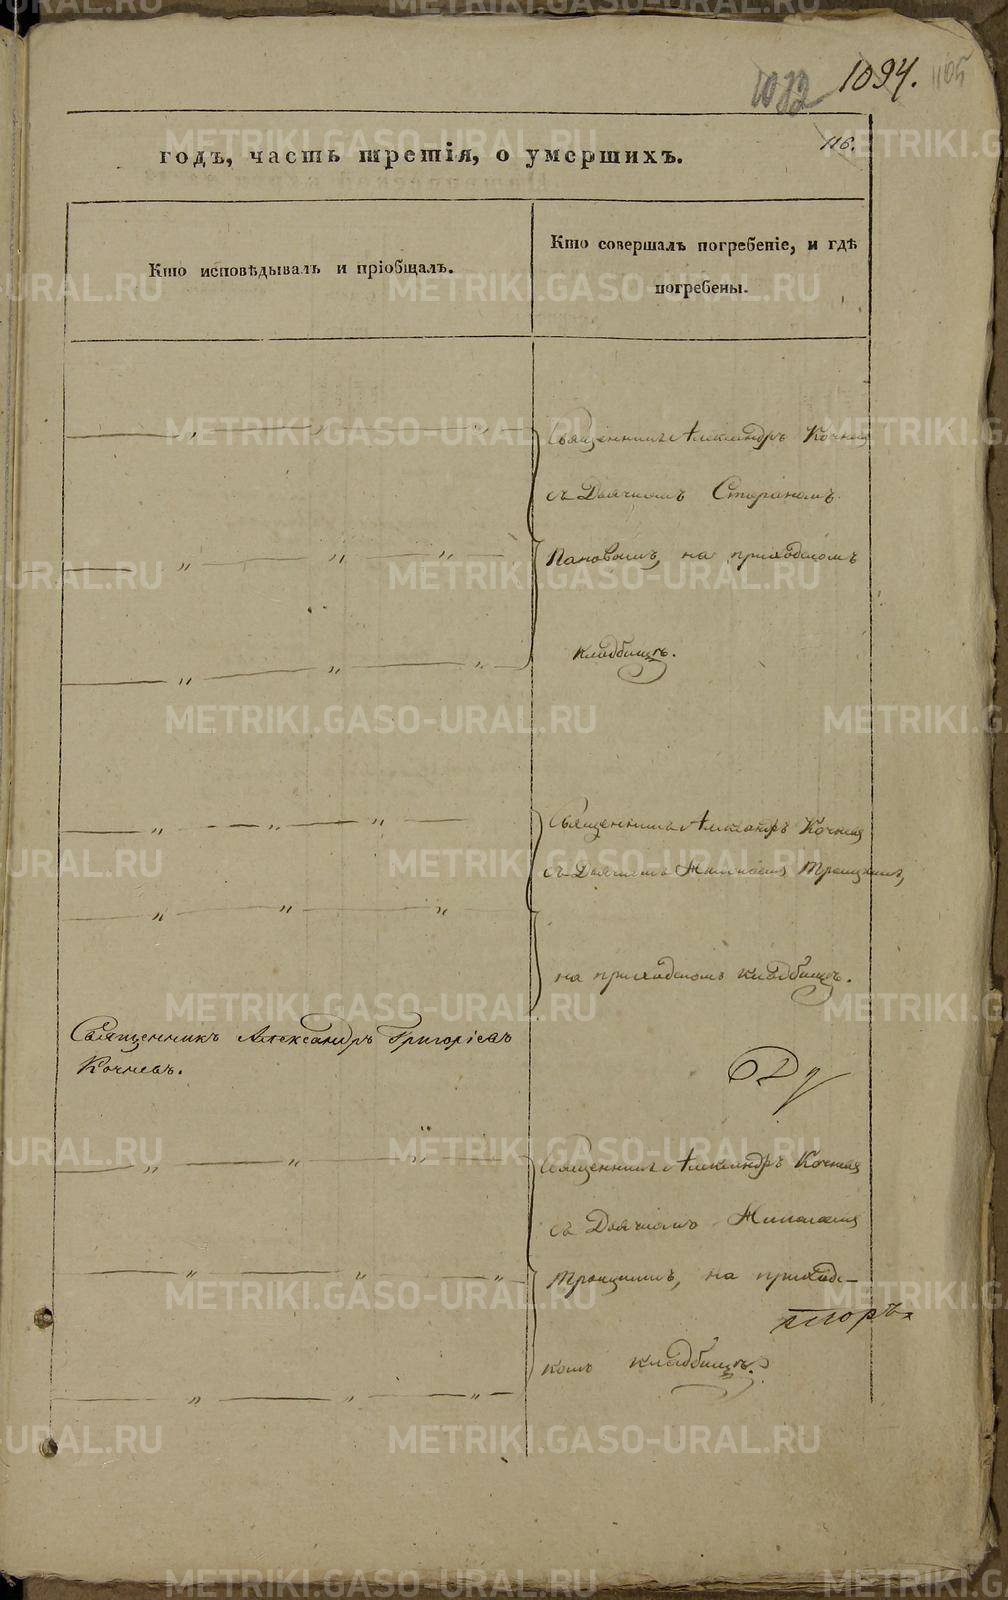 1032 1094. 1105
116.
годъ, часть третія, о умершихъ.
Кто исповѣдывалъ и пріобщалъ.
Кто совершалъ погребеніе, и гдѣ
погребены.
Священникъ Александръ Кочнев
съ Дьячкомъ Стефаномъ
Пановымъ, на приходскомъ
кладбищѣ.
Священникъ Александръ Кочнев
съ Дьячкомъ Николаем Троицкимъ,
на приходскомъ кладбищѣ.
Священникъ Александръ Григоріевъ
Кочневъ.
Священникъ Александръ Кочнев
съ Дьячкомъ Николаем
Троицкимъ, на приходс-
комъ кладбищѣ.
METRIKI.GASO-URAL.RU